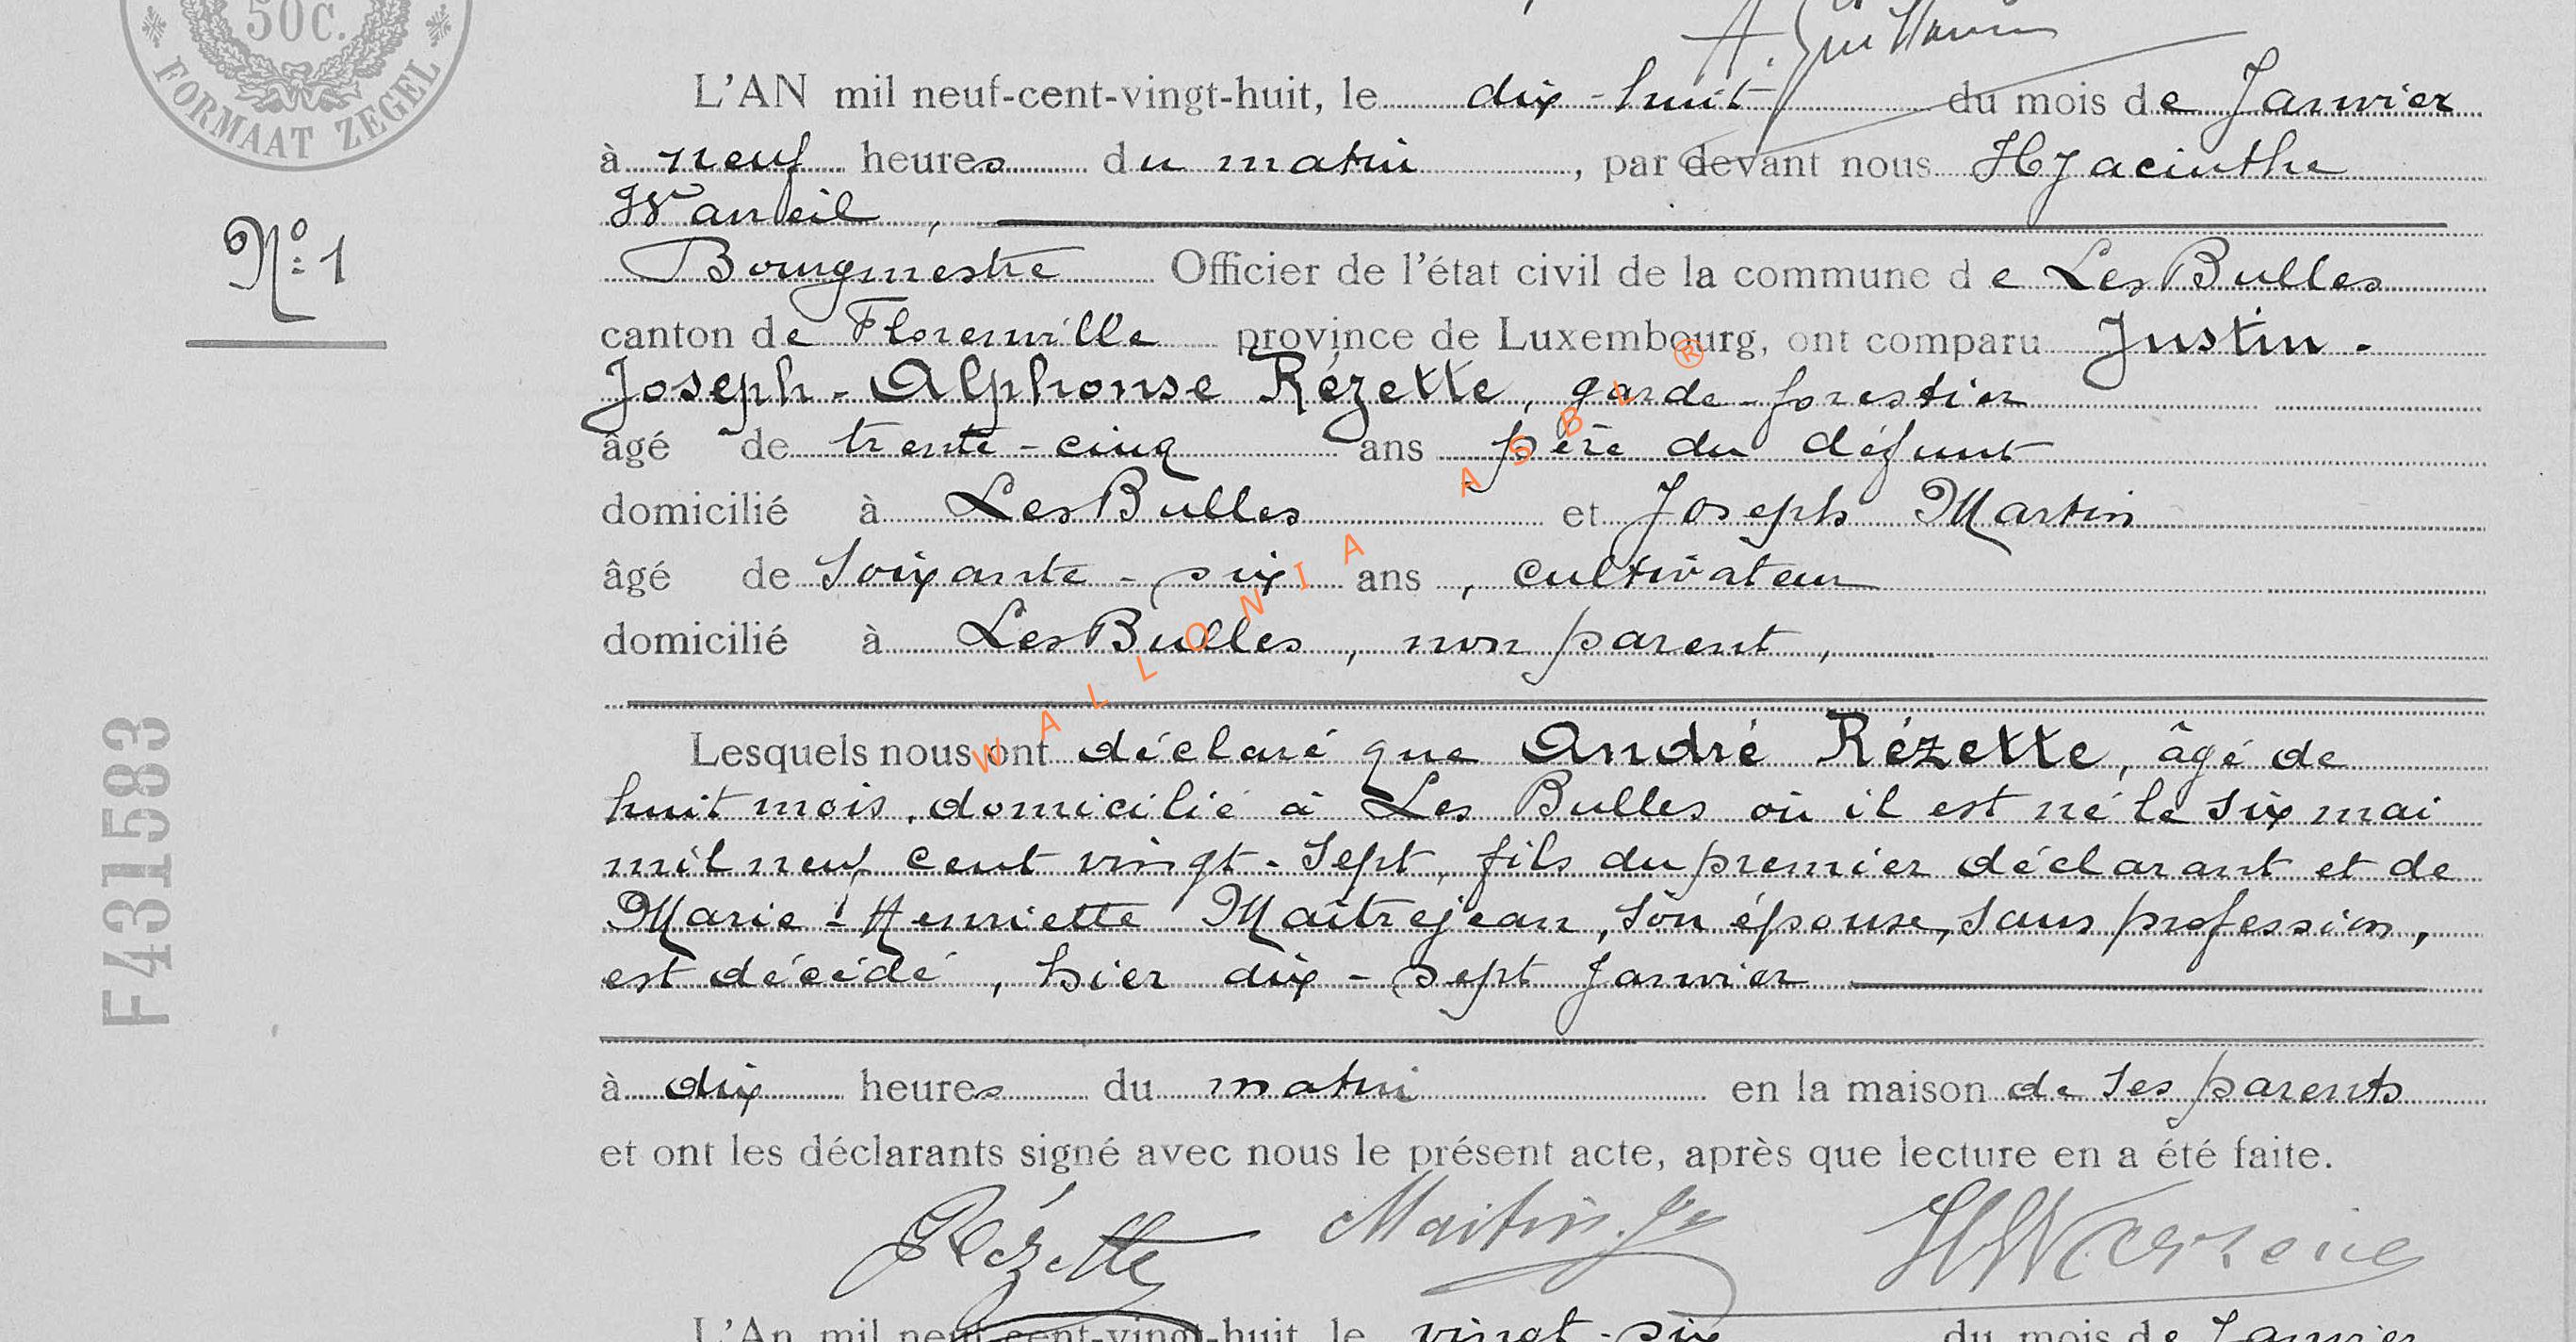 50 C.
FORMAAT ZEGEL
A. Guillaume
L'AN mil neuf-cent-vingt-huit, le dix-huit du mois de Janvier
à neuf heures du matin, par devant nous Hyacinthe
Nº 1
Bourgmestre Officier de l'état civil de la commune de Les Bulles
canton de Florenville province de Luxembourg, ont comparu Justin-
Joseph-Alphonse Rézette, garde-forestier
âgé de trente-cinq ans père du défunt
domicilié à Les Bulles et Joseph Martin
âgé de soixante-six ans, cultivateur
domicilié à Les Bulles, non parent,
Lesquels nous ont déclaré que André Rézette, âgé de
huit mois, domicilié à Les Bulles où il est né le six mai
mil neuf cent vingt-sept, fils du premier déclarant et de
Marie-Henriette Maîtrejean, son épouse, sans profession,
est décédé, hier dix-sept Janvier
à dix heures du matin en la maison de ses parents
et ont les déclarants signé avec nous le présent acte, après que lecture en a été faite.
Rézette Martin Js
L'An mil neuf-cent-vingt-huit, le vingt-six du mois de Janvier
F431583
WALLONIA ASBL ®